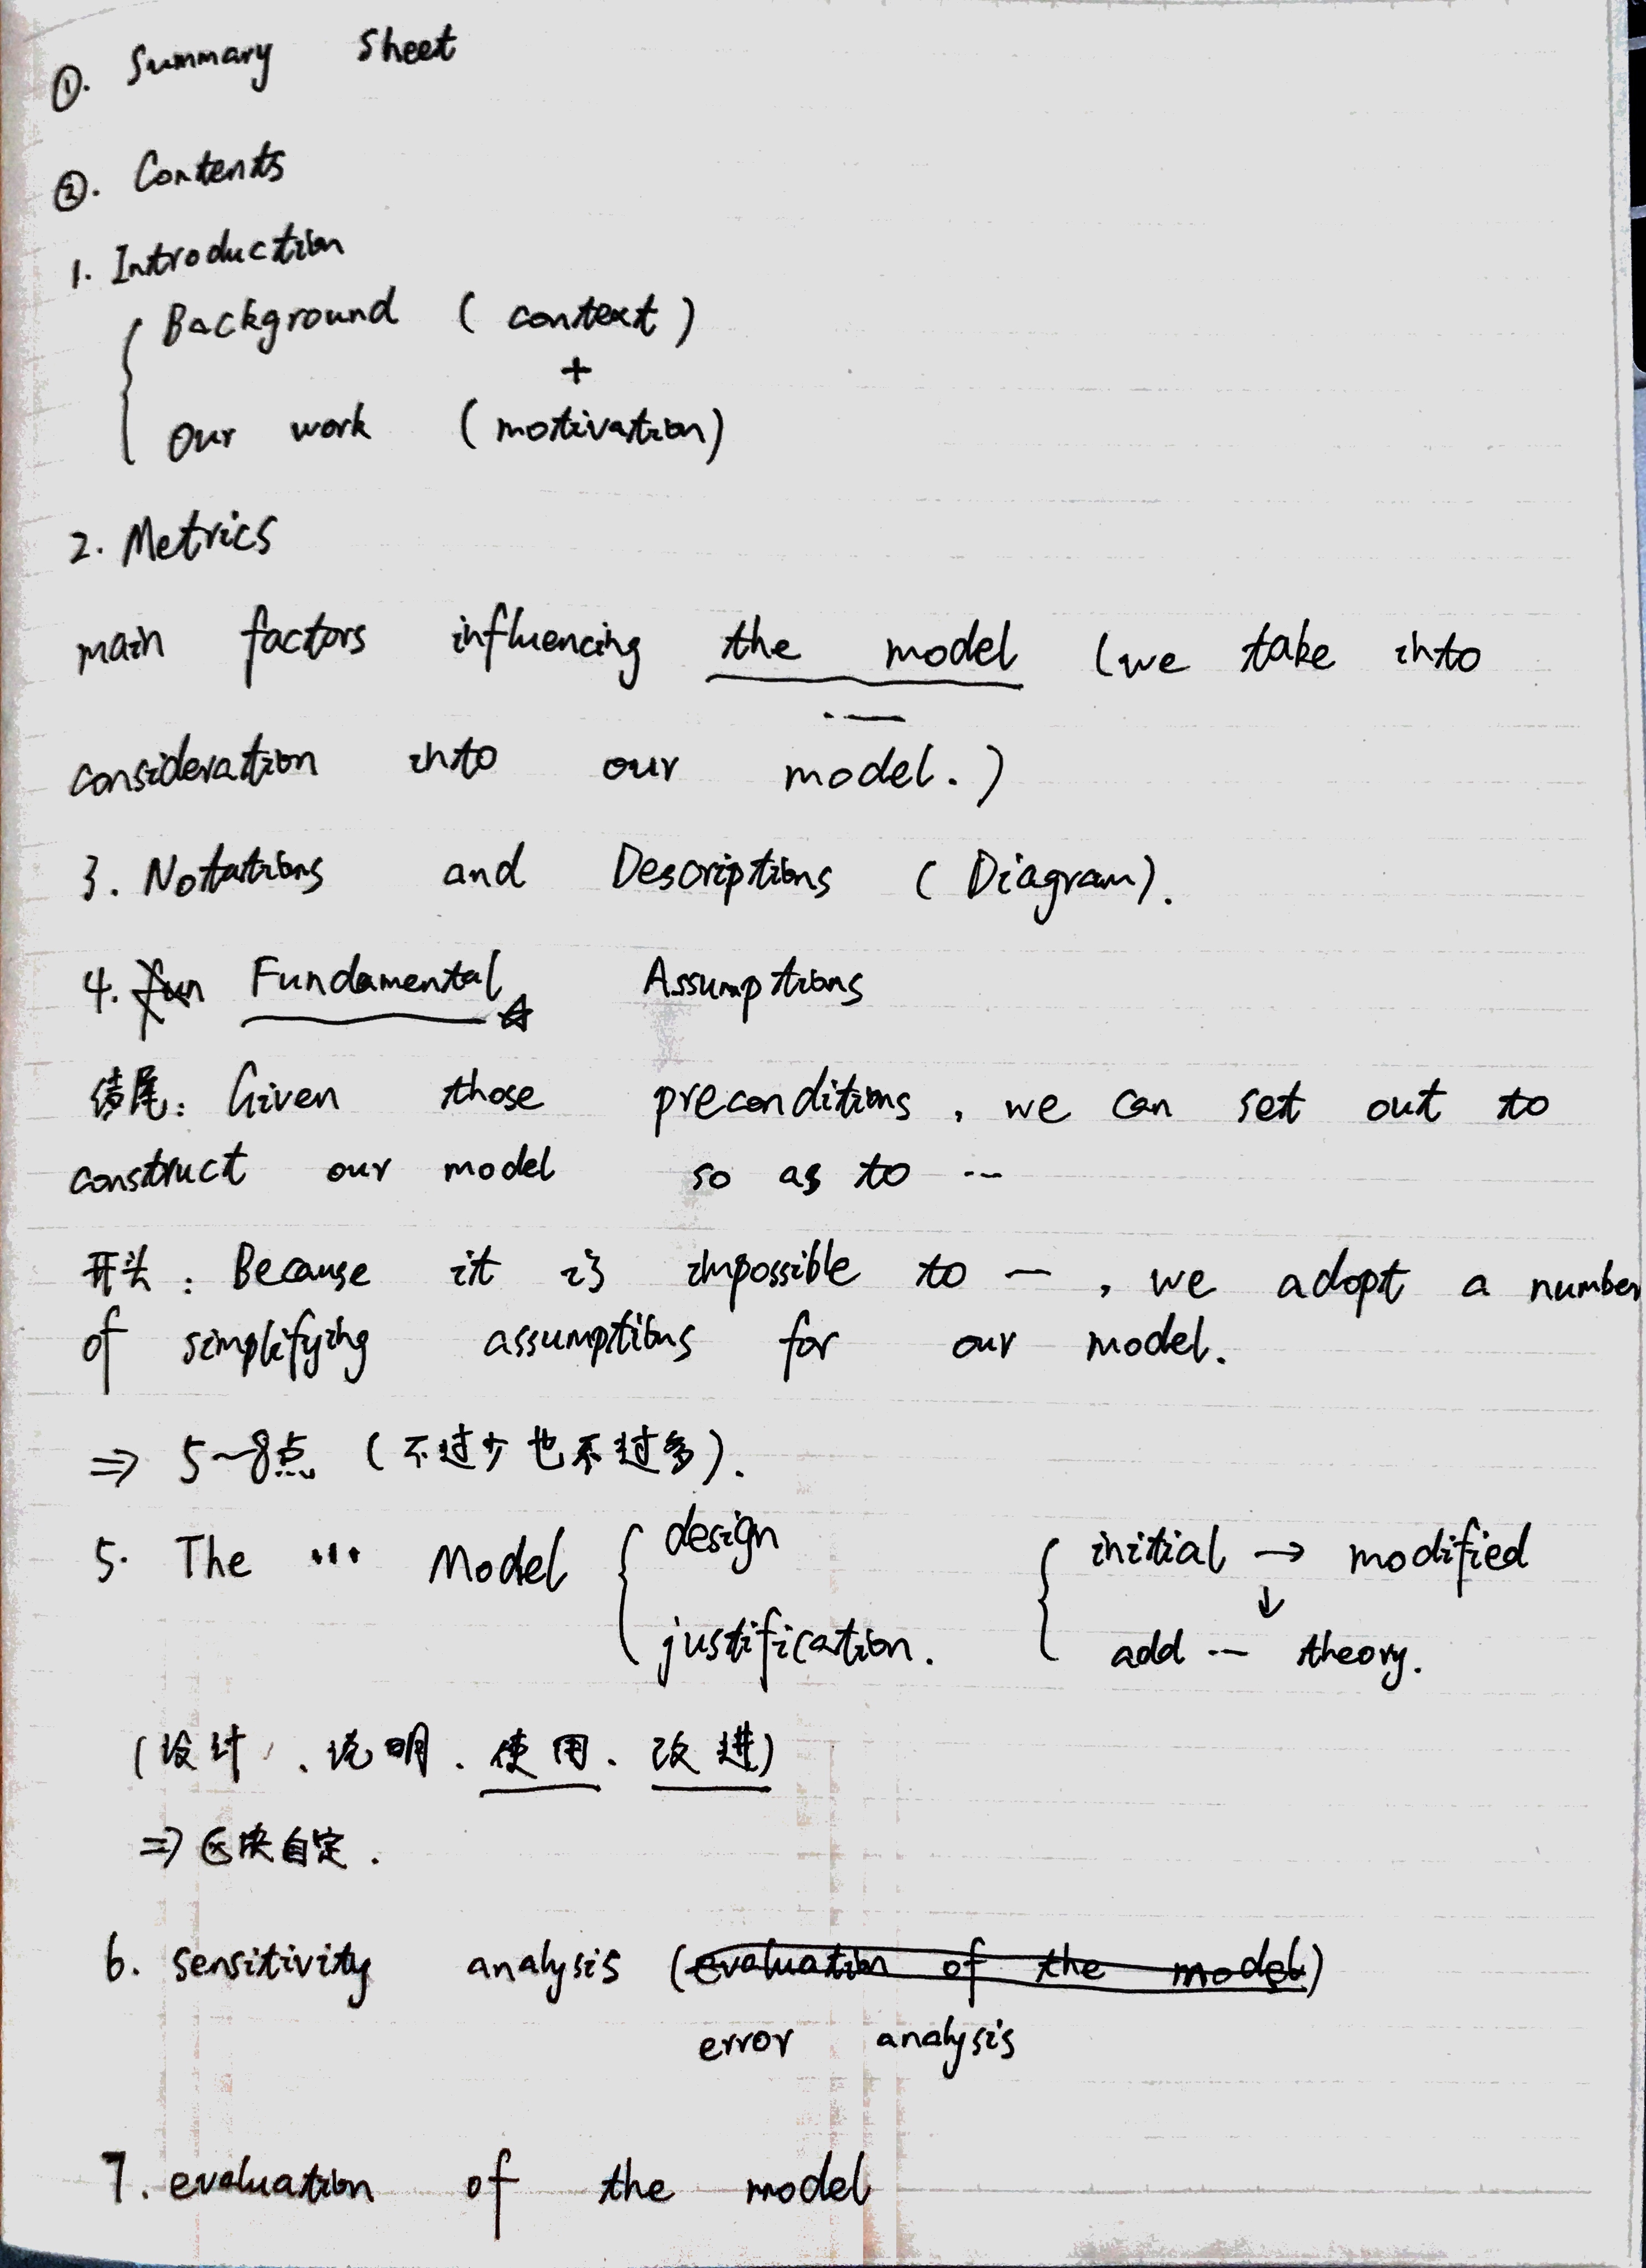 ①. Summary Sheet
②. Contents
1. Introduction
Background ( context )
+
Our work ( motivation)
2. Metrics
main factors influencing the model (we take into
consideration into our model.)
3. Notations and Descriptions ( Diagram).
4. fun Fundamental☆ Assumptions
结尾: Given those preconditions, we can set out to
construct our model so as to ...
开头: Because it is impossible to ..., we adopt a number
of simplifying assumptions for our model.
⇒ 5~8点 (不过少也不过多).
5. The ... Model { design { initial → modified
↓
justification. add ... theory.
(设计、说明、使用、改进)
⇒ 区块自定.
6. sensitivity analysis (evaluation of the model)
error analysis
7. evaluation of the model